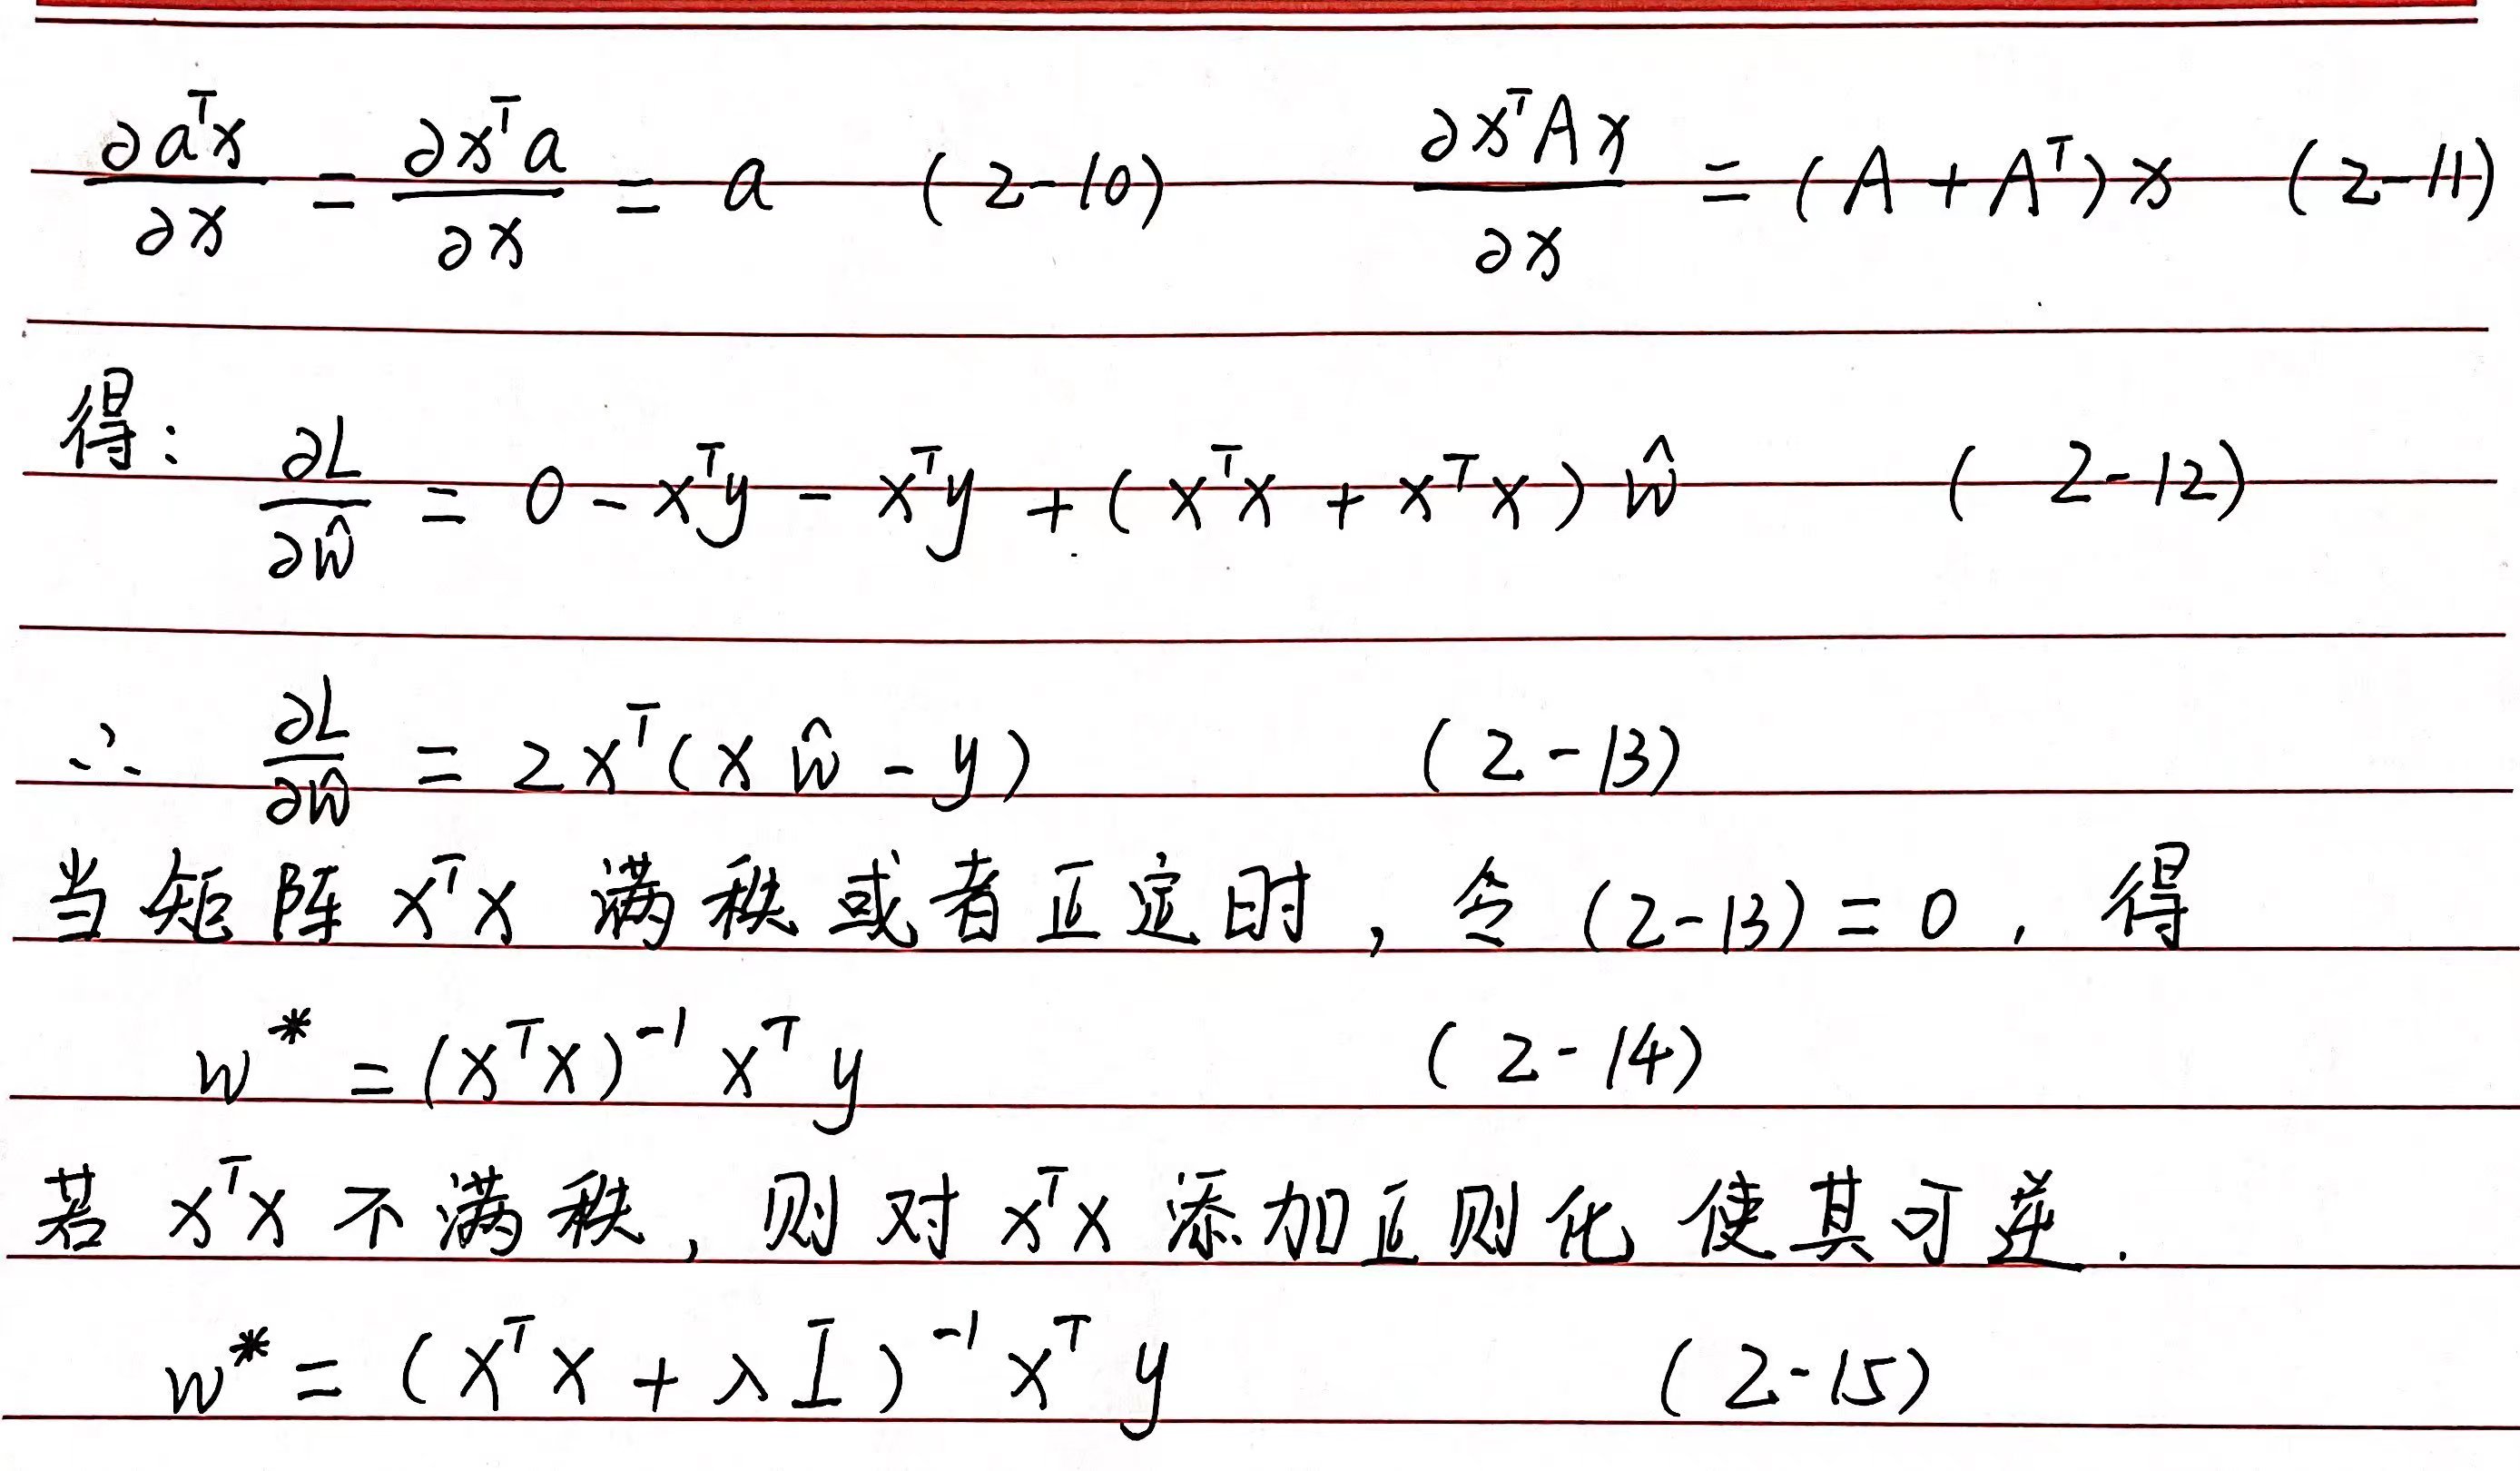 ∂aᵀx/∂x = ∂xᵀa/∂x = a (2-10) ∂xᵀAx/∂x = (A + Aᵀ)x (2-11)
得: ∂L/∂ŵ = 0 - xᵀy - xᵀy + (xᵀx + xᵀx)ŵ (2-12)
∴ ∂L/∂ŵ = 2xᵀ(xŵ - y) (2-13)
当矩阵xᵀx满秩或者正定时, 令(2-13)=0, 得
w* = (xᵀx)⁻¹xᵀy (2-14)
若xᵀx不满秩, 则对xᵀx添加正则化使其可逆.
w* = (xᵀx + λI)⁻¹xᵀy (2-15)